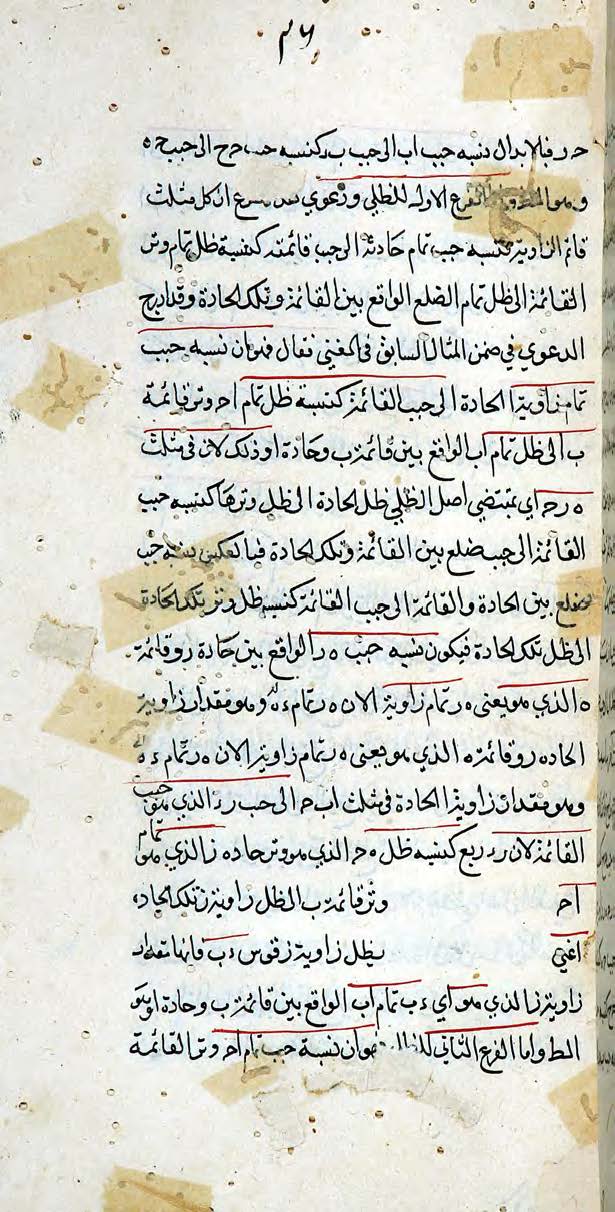 ٣٦
ح ر فلابدال نسبه جيب اب الى جيب ب د كنسبه جيب ح ج الى جيب ج ه
وهو المطلوب الفرع الاول للظلي ودعوي ان كل مثلث
قائم الزاوية فنسبه جيب تمام حادته الى جيب قائمته كنسبة ظل تمام وتر
القائمة الى ظل تمام الضلع الواقع بين القائمة وتلك الحادة وقد ادرج
الدعوي في ضمن المثال السابق في المغني نقال فهو ان نسبه جيب
تمام زاوية ا الحادة الى جيب القائمة كنسبة ظل تمام ا ح وتر قائمة
ب الى ظل تمام اب الواقع بين قائمة ب وحادة ا وذلك لان في مثلث
ه ر ح اي بمقتضي اصل الظلي ظل الحادة الى ظل وترها كنسبه جيب
القائمة الى جيب ضلع بين القائمة وتلك الحادة فبالعكس نسبه جيب
ضلع بين الحادة والقائمة الى جيب القائمة كنسبه ظل وتر تلك الحادة
الى ظل تلك الحادة فيكون نسبه جيب ه ر الواقع بين حادة ر وقائمة
ه الذي هو يعني ه ر تمام زاوية ا لان ه ر تمام ء ه وهو مقدار زاوية
الحاده ر وقائمة ه الذي هو يعني ه ر تمام زاوية ا لان ه ر تمام ء ه
وهو مقدار زاوية ا الحادة في مثلث اب ح الى جيب ر ء الذي هو جيب
القائمة لان ر ء ربع كنسبه ظل ه ح الذي هو وتر حاده ز الذي هو تمام
ا ح وتر قائمة ب الى ظل زاوية ز تلك الحاد
اعني لظل زاوية ز قوس ء ب فانها مقدار
زاوية ز الذي هو اي ء ب تمام اب الواقع بين قائمة ب وحادة ا وهو
المط واما الفرع الثاني للظلي فهو ان نسبة جيب تمام ا ح وتر القائمة